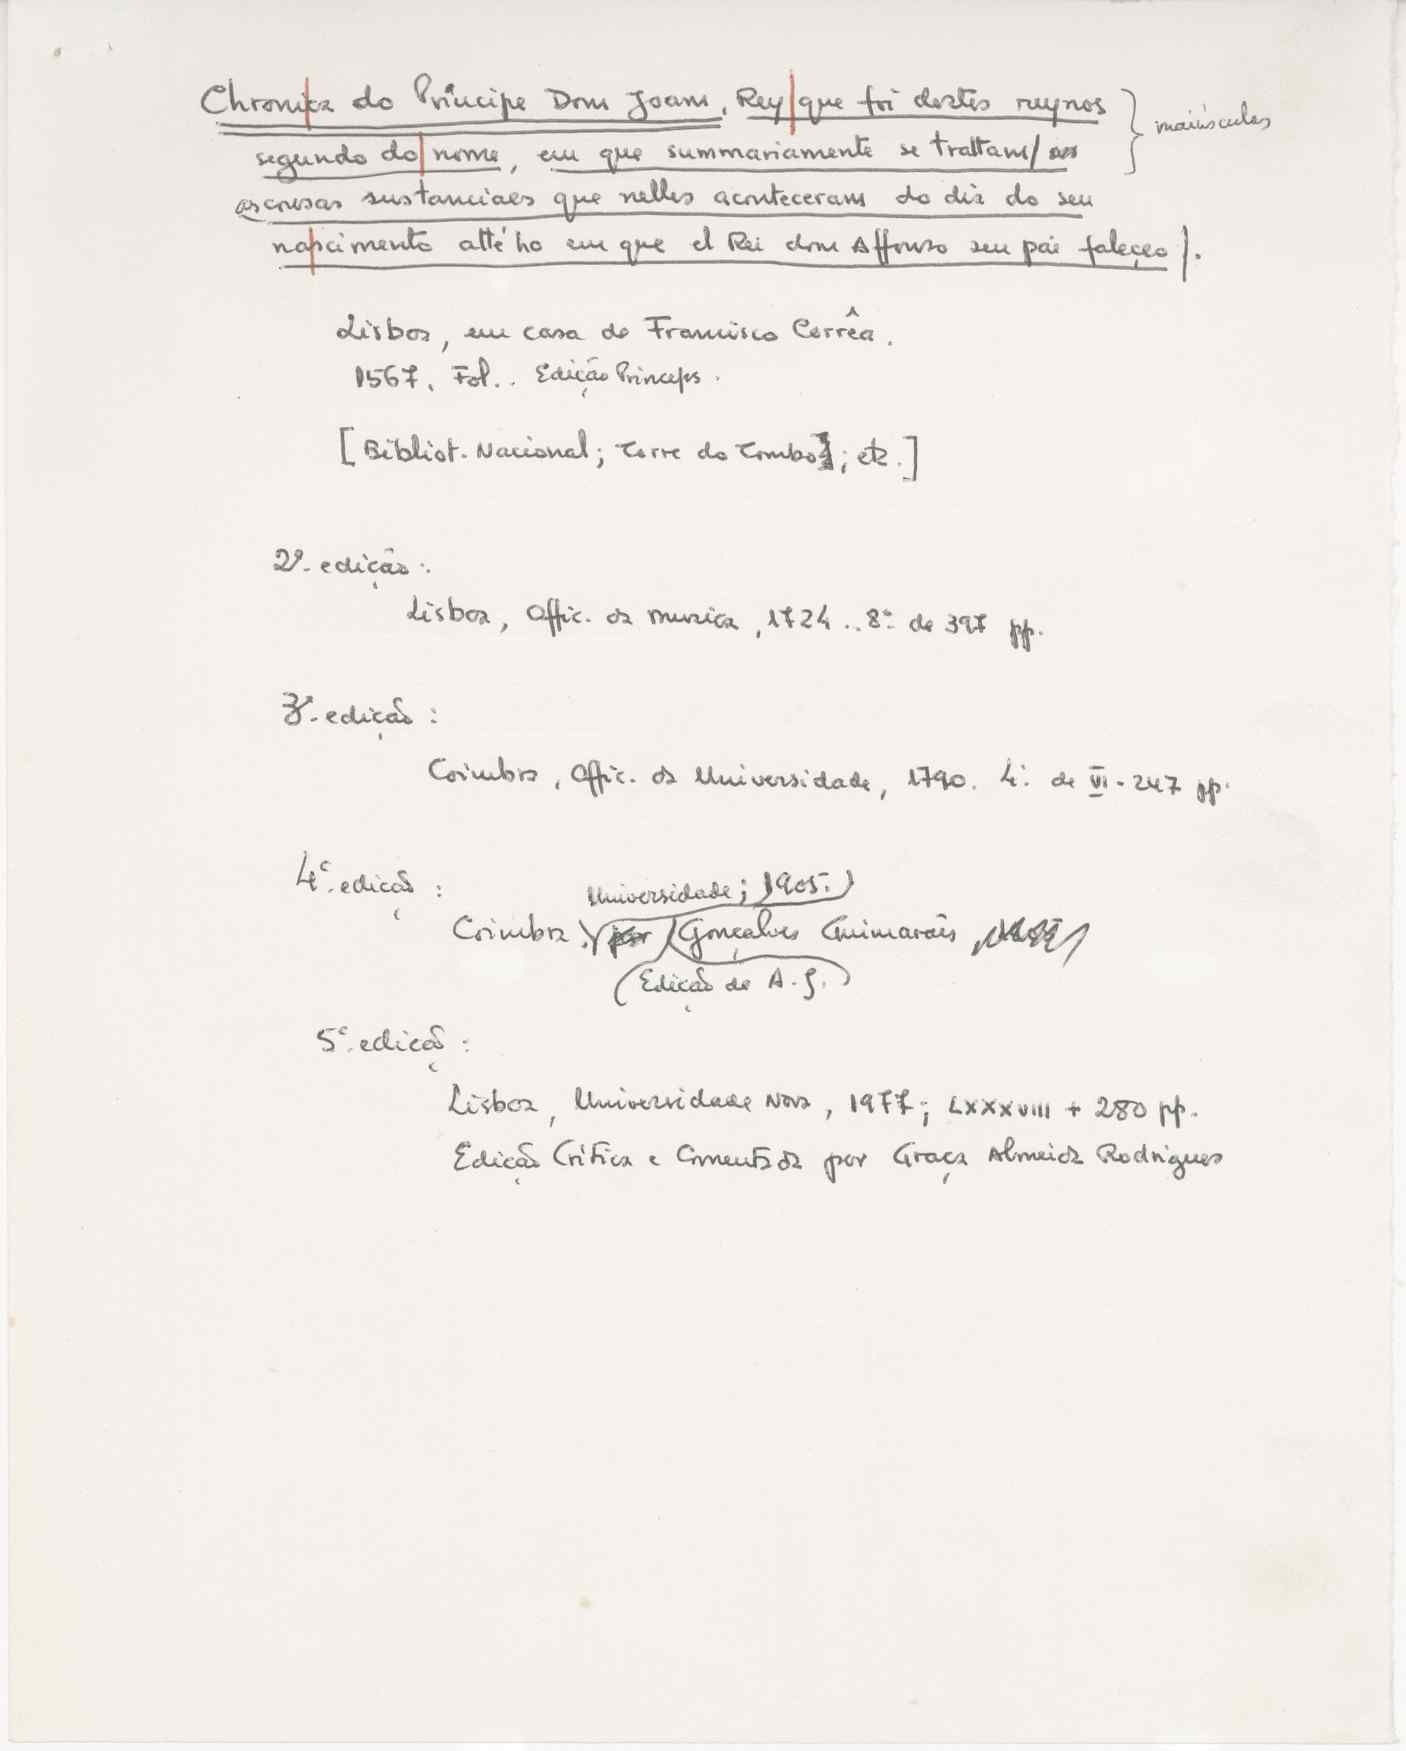 Chronica do Principe Dom Joam, Rey que foi destes reynos
maiúsculas
segundo do nome, em que summariamente se trattam
as cousas sustanciaes que nelles aconteceram do dia do seu
nascimento atté ho em que el Rei dom Affonso seu pai faleçeo.
Lisboa, em casa de Francisco Corrêa.
1567. Fol.. Edição Princeps.
[Bibliot. Nacional; Torre do Tombo; etc.]
2ª. edição:
Lisboa, Offic. da Musica, 1724.. 8º. de 397 pp.
3ª. edição:
Coimbra, Offic. da Universidade, 1790. 4º. de VI-247 pp.
4ª. edição:
Universidade; 1905.
Coimbra, Gonçalves Guimarãis
(Edição de A. G.)
5ª. edição:
Lisboa, Universidade Nova, 1977; LXXXVIII + 280 pp.
Edição Crítica e Comentada por Graça Almeida Rodrigues